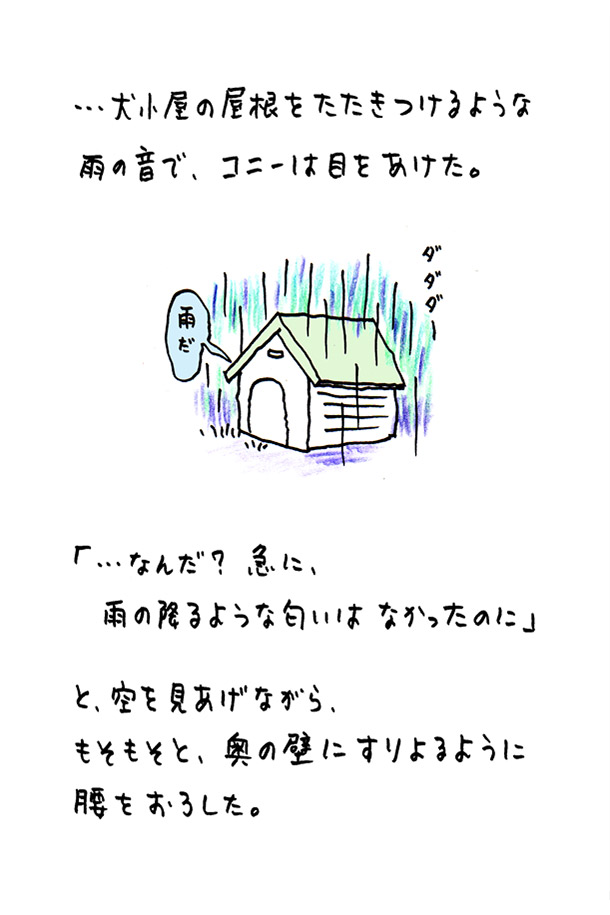 …犬小屋の屋根をたたきつけるような
雨の音で、コニーは目をあけた。
ダダダー
雨だ
「…なんだ？急に、
雨の降るような匂いは なかったのに」
と、空を見あげながら、
もそもそと、奥の壁にすりよるように
腰をおろした。